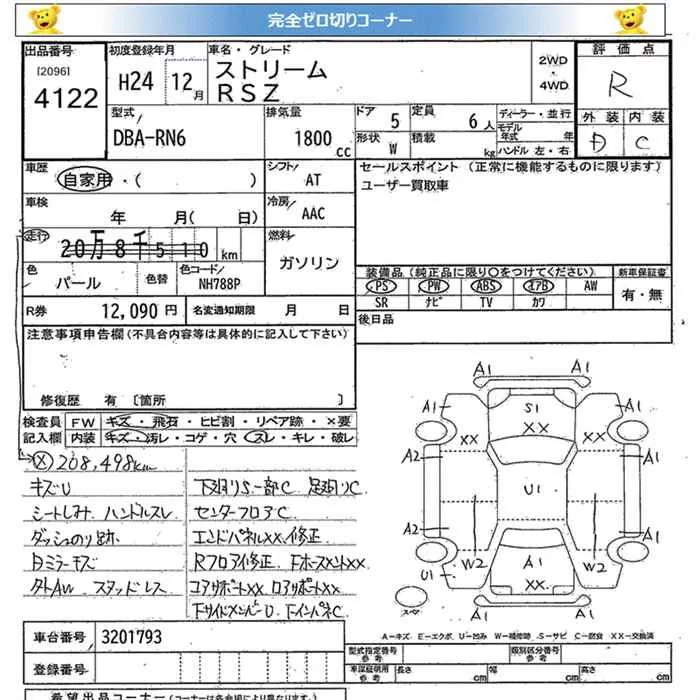 完全ゼロ切りコーナー
出品番号
[2096]
4122
初度登録年月
H24 12月
車名・グレード
ストリーム
RSZ
2WD
・
4WD
評価点
R
外装 内装
D C
型式
DBA-RN6
排気量
1800 cc
ドア 5
定員 6人
形状 W
積載 kg
ディーラー・並行
モデル年式 年
ハンドル 左・右
車歴
自家用・( )
シフト
AT
セールスポイント(正常に機能するものに限ります)
ユーザー買取車
車検
年 月( 日)
冷房
AAC
走行
20万8千510km
燃料
ガソリン
色
パール
色替
色コード
NH788P
装備品(純正品に限り○をつけてください)
新車保証書
PS PW ABS エアB AW
SR ナビ TV カワ
有・無
R券 12,090円
名変通知期限 月 日
後日品
注意事項申告欄(不具合内容等は具体的に記入して下さい)
修復歴 有〔箇所 〕
検査員記入欄
FW キズ・飛石・ヒビ割・リペア跡・×要
内装 キズ・汚レ・コゲ・穴・スレ・キレ・破レ
(X) 208,498km
キズU
シートしみ ハンドルスレ
ダッシュのり跡
タト AW スタッドレス
下廻りS一部C 足廻りC
センターフロアC
エンドパネルXX、修正
コアサポートXX ロアサポートXX
下サイドメンバーU
A1
A1 S1 A1
XX XX XX
A2 A1
U1
A2 A1
W2 A1 W2
U1 XX
A1
スペア
A-キズ E-エクボ U-凹み W-補修跡 S-サビ C-腐食 XX-交換済
車台番号 3201793
登録番号
型式指定番号
参考
類別区分番号
参考
車庫証明用
参考
長さ cm 幅 cm 高さ cm
希望出品コーナー(コーナーは各会場により異なります)